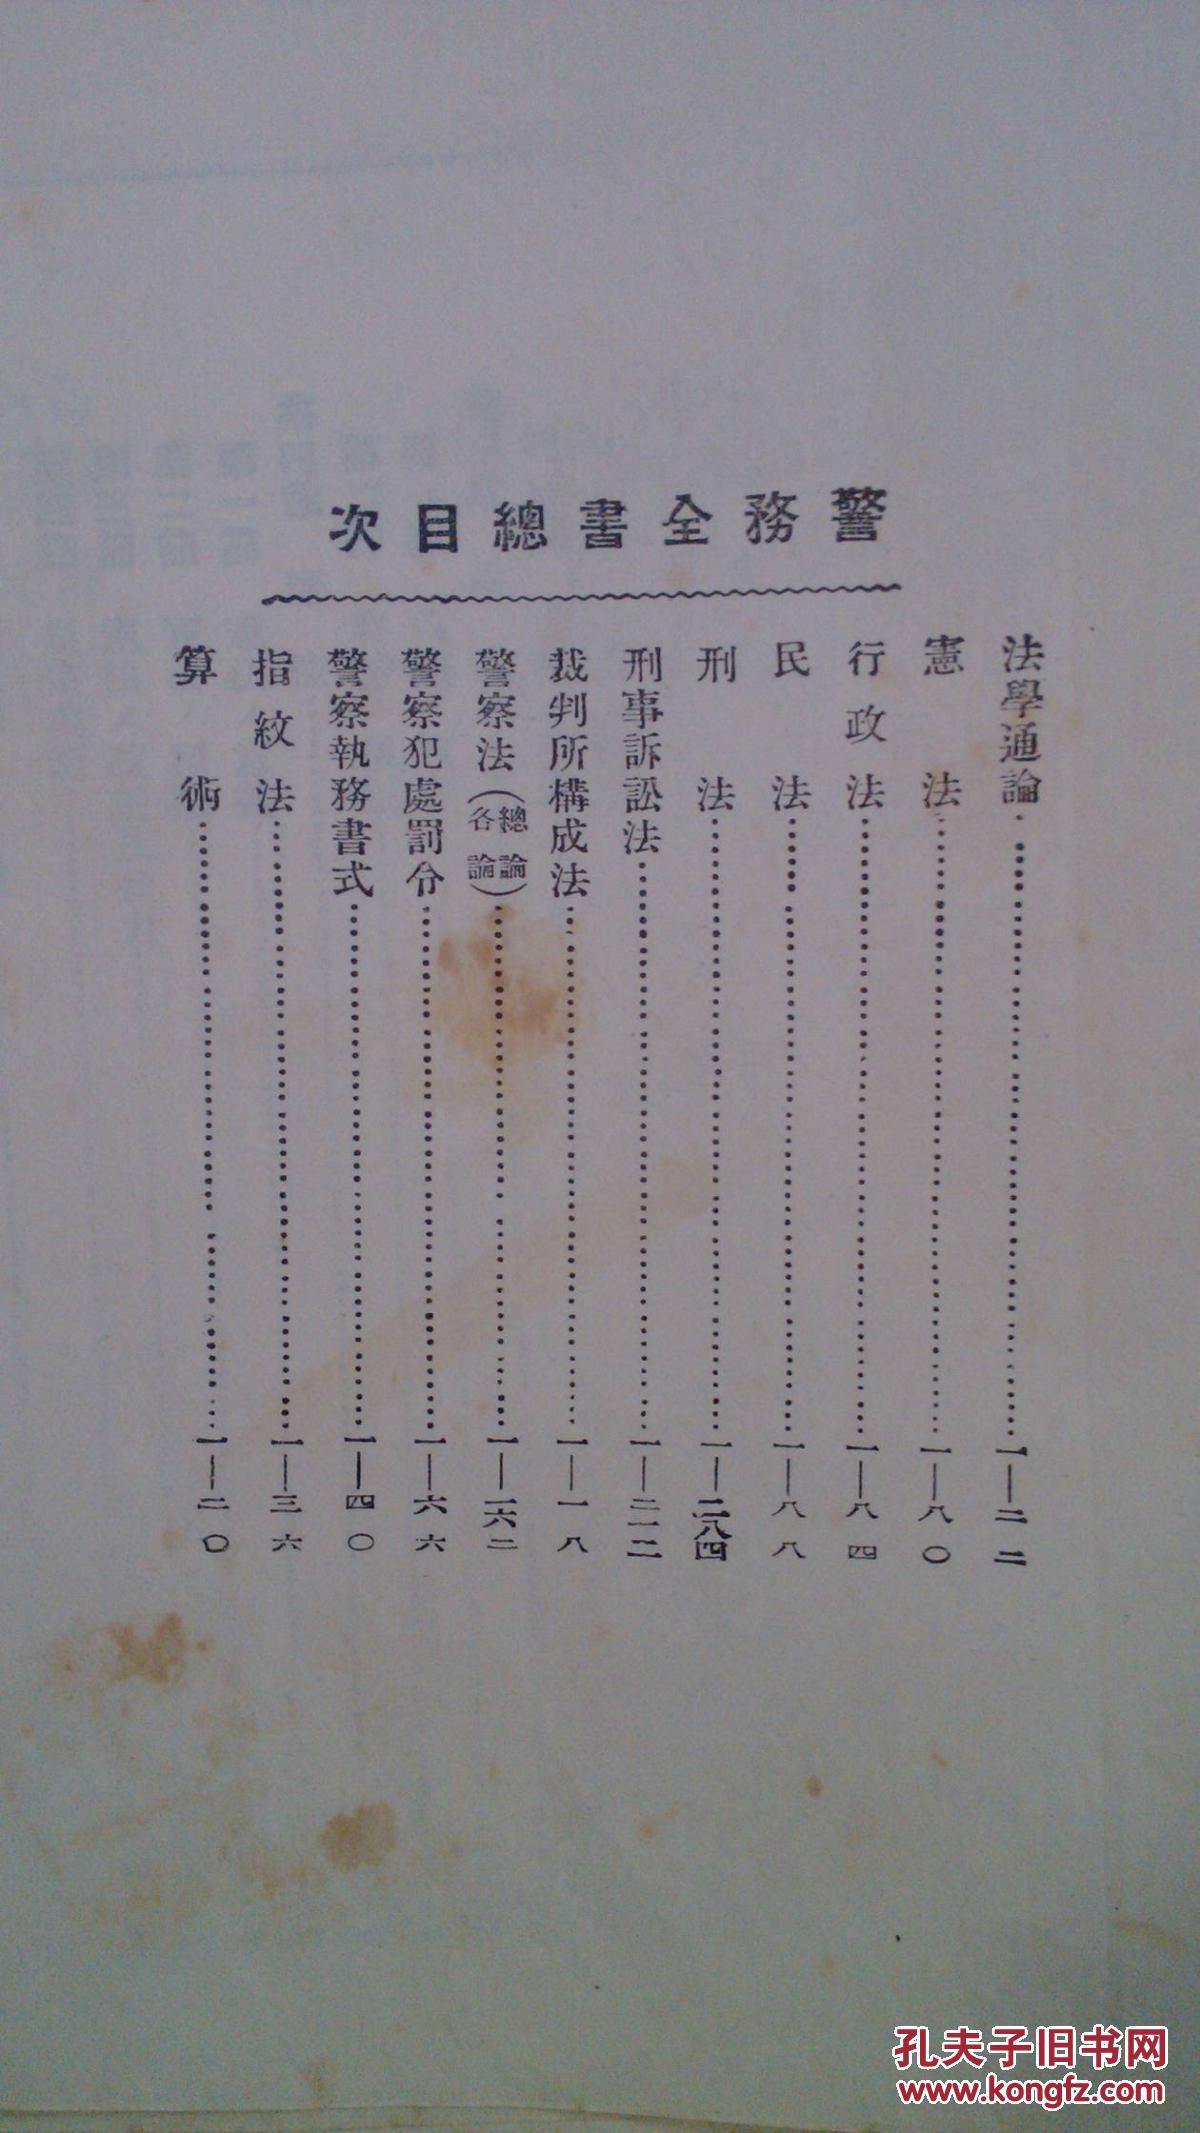 警務全書總目次
法學通論……一—二二
憲法……一—八〇
行政法……一—八四
民法……一—八八
刑法……一—二八四
刑事訴訟法……一—二一二
裁判所構成法……一—一八
警察法(總論各論)……一—一六二
警察犯處罰分……一—六六
警察執務書式……一—四〇
指紋法……一—三六
算術……一—二〇
孔夫子旧书网
www.kongfz.com